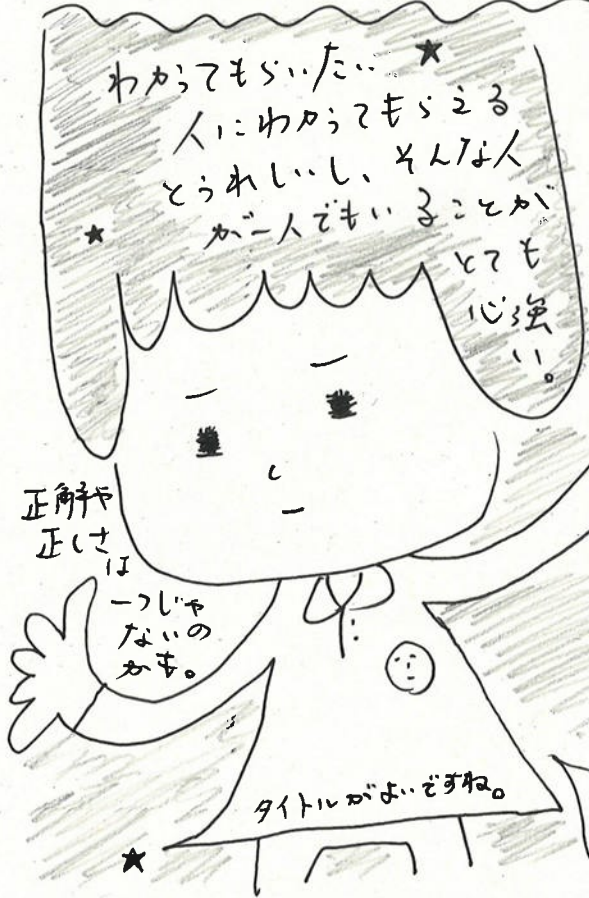 わかってもらいたい
人にわかってもらえる
とうれしいし、そんな人
が一人でもいることが
とても
心強
い。
正解や
正しさ
は
一つじゃ
ないの
かも。
タイトルがよいですね。